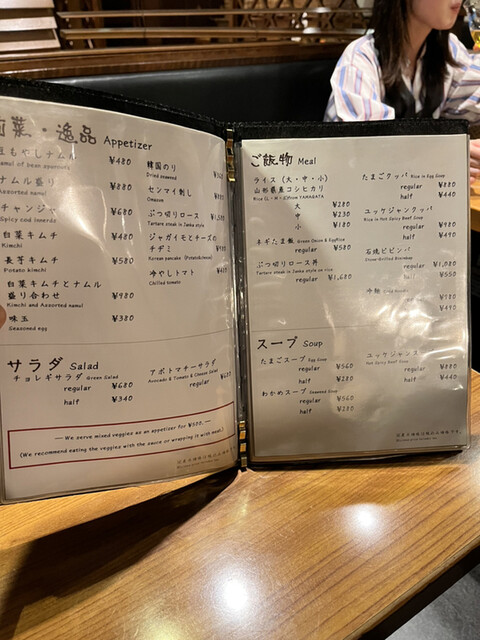 前菜・逸品 Appetizer
豆もやしナムル ¥480
Namul of bean sprouts
ナムル盛り ¥880
Assorted namul
チャンジャ ¥680
Spicy cod innards
白菜キムチ ¥480
Kimchi
長芋キムチ ¥580
Potato kimchi
白菜キムチとナムル
盛り合わせ ¥980
Kimchi and Assorted namul
味玉 ¥380
Seasoned egg
韓国のり
Dried seaweed
センマイ刺し
Omasum
ぶつ切りロース
Tartare steak in Junka style
ジャガイモとチーズの
チヂミ
Korean pancake (Potato&cheese)
冷やしトマト
Chilled tomato
サラダ Salad
チョレギサラダ Green Salad
regular ¥680
half ¥340
アボトマナーサラダ
Avocado & Tomato & Cheese Salad
regular
— We serve mixed veggies as an appetizer for ¥500. —
(We recommend eating the veggies with the sauce or wrapping it with meat.)
ご飯物 Meal
ライス (大・中・小)
山形県産コシヒカリ
大 ¥280
中 ¥230
小 ¥180
ネギたま飯 Green Onion & EggRice
regular ¥580
ぶつ切りロース丼
Tartare steak in Junka style on rice
regular ¥1,680
たまごクッパ Rice in Egg Soup
regular ¥880
half ¥440
ユッケジャンクッパ
Rice in Hot Spicy Beef Soup
regular ¥980
half ¥490
石焼ビビンバ
Stone-Grilled Bibimbap
regular ¥1,080
half ¥550
冷麺
スープ Soup
たまごスープ Egg Soup
regular ¥560
half ¥280
わかめスープ Seaweed Soup
regular ¥560
half ¥280
ユッケジャンスープ
Hot Spicy Beef Soup
regular ¥880
half ¥440